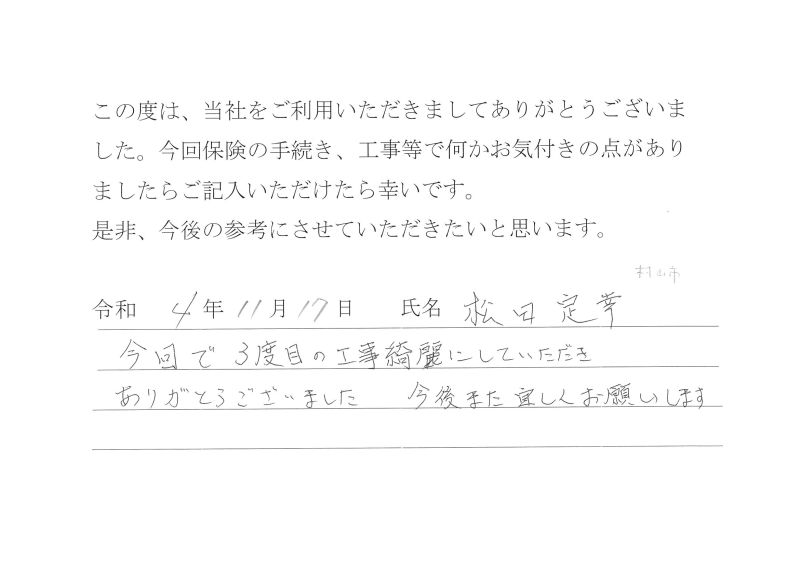 この度は、当社をご利用いただきましてありがとうございま
した。今回保険の手続き、工事等で何かお気付きの点があり
ましたらご記入いただけたら幸いです。
是非、今後の参考にさせていただきたいと思います。
村山市
令和 4年 11月 17日 氏名 松田定幸
今回で3度目の工事綺麗にしていただき
ありがとうございました 今後また宜しくお願いします